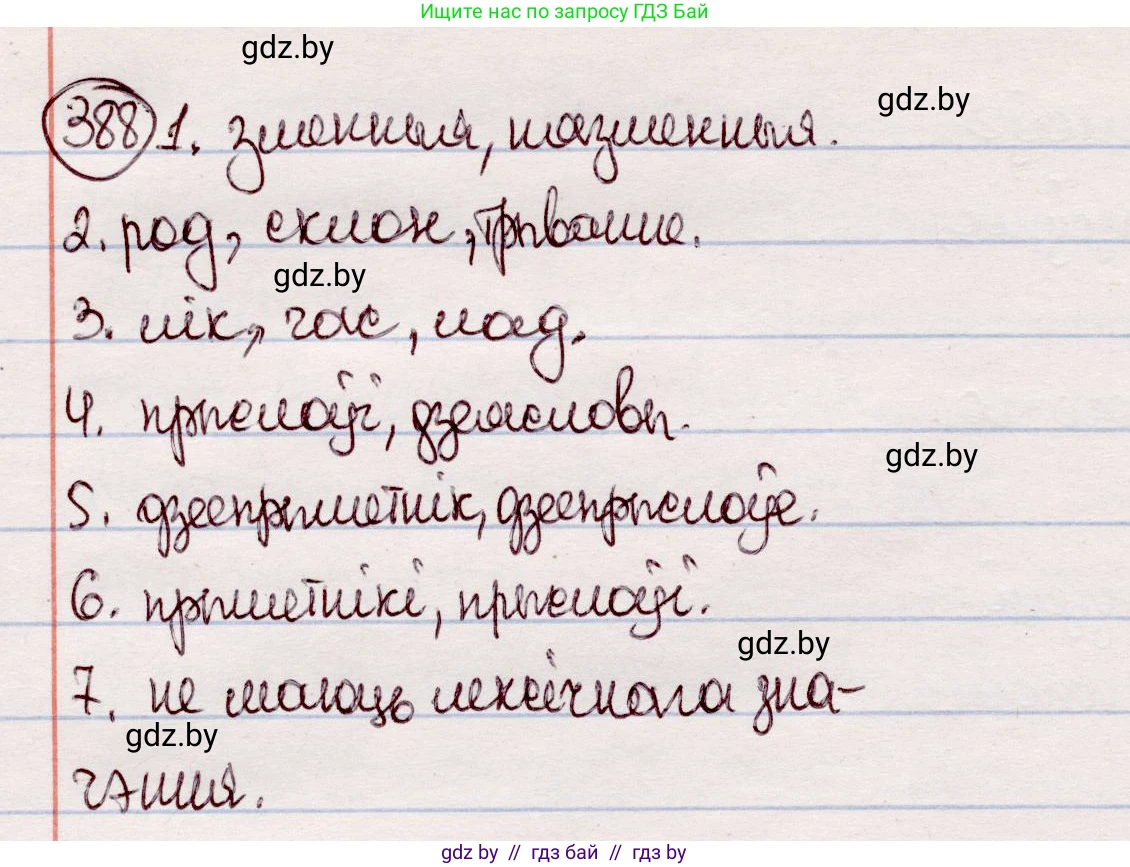 Ищите нас по запросу ГДЗ Бай
gdz.by
gdz.by
388 1. зменныя, нязменныя.
2. род, склон, трыванне.
gdz.by
3. лік, час, лад.
4. прыслоўі, дзеясловы.
gdz.by
5. дзеепрыметнік, дзеепрыслоўе.
6. прыметнікі, прыслоўі.
gdz.by
7. не маюць лексічнага зна-
gdz.by
чэння.
gdz.by // гдз бай // гдз by